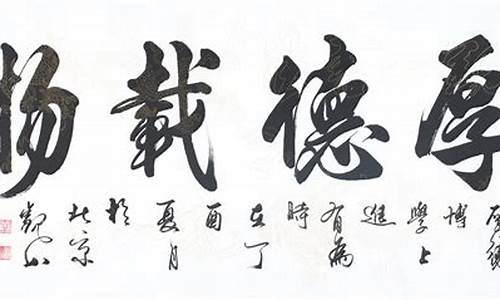 厚德載物
厚德
博
學上
進
有為
時
在丁
酉
夏月
於
北京